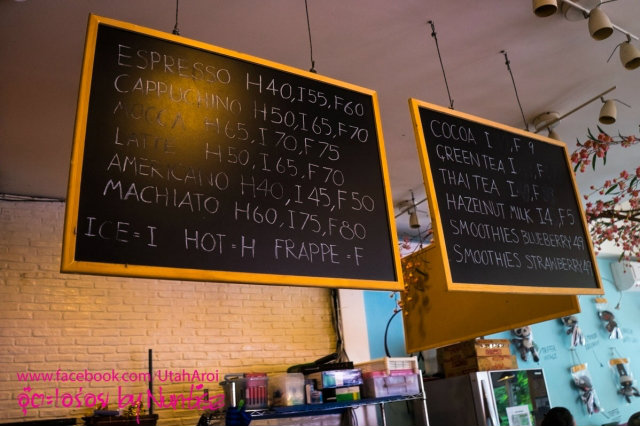 ESPRESSO H40,I55,F60
CAPPUCHINO H50,I65,F70
MOCCA H65,I70,F75
LATTE H50,I65,F70
AMERICANO H40,I45,F50
MACHIATO H60,I75,F80
ICE=I HOT=H FRAPPE=F
COCOA I ,F
GREEN TEA I ,F
THAI TEA I ,F
HAZELNUT MILK I4 ,F5
SMOOTHIES BLUEBERRY
SMOOTHIES STRAWBERRY
www.facebook.com/UtahAroi